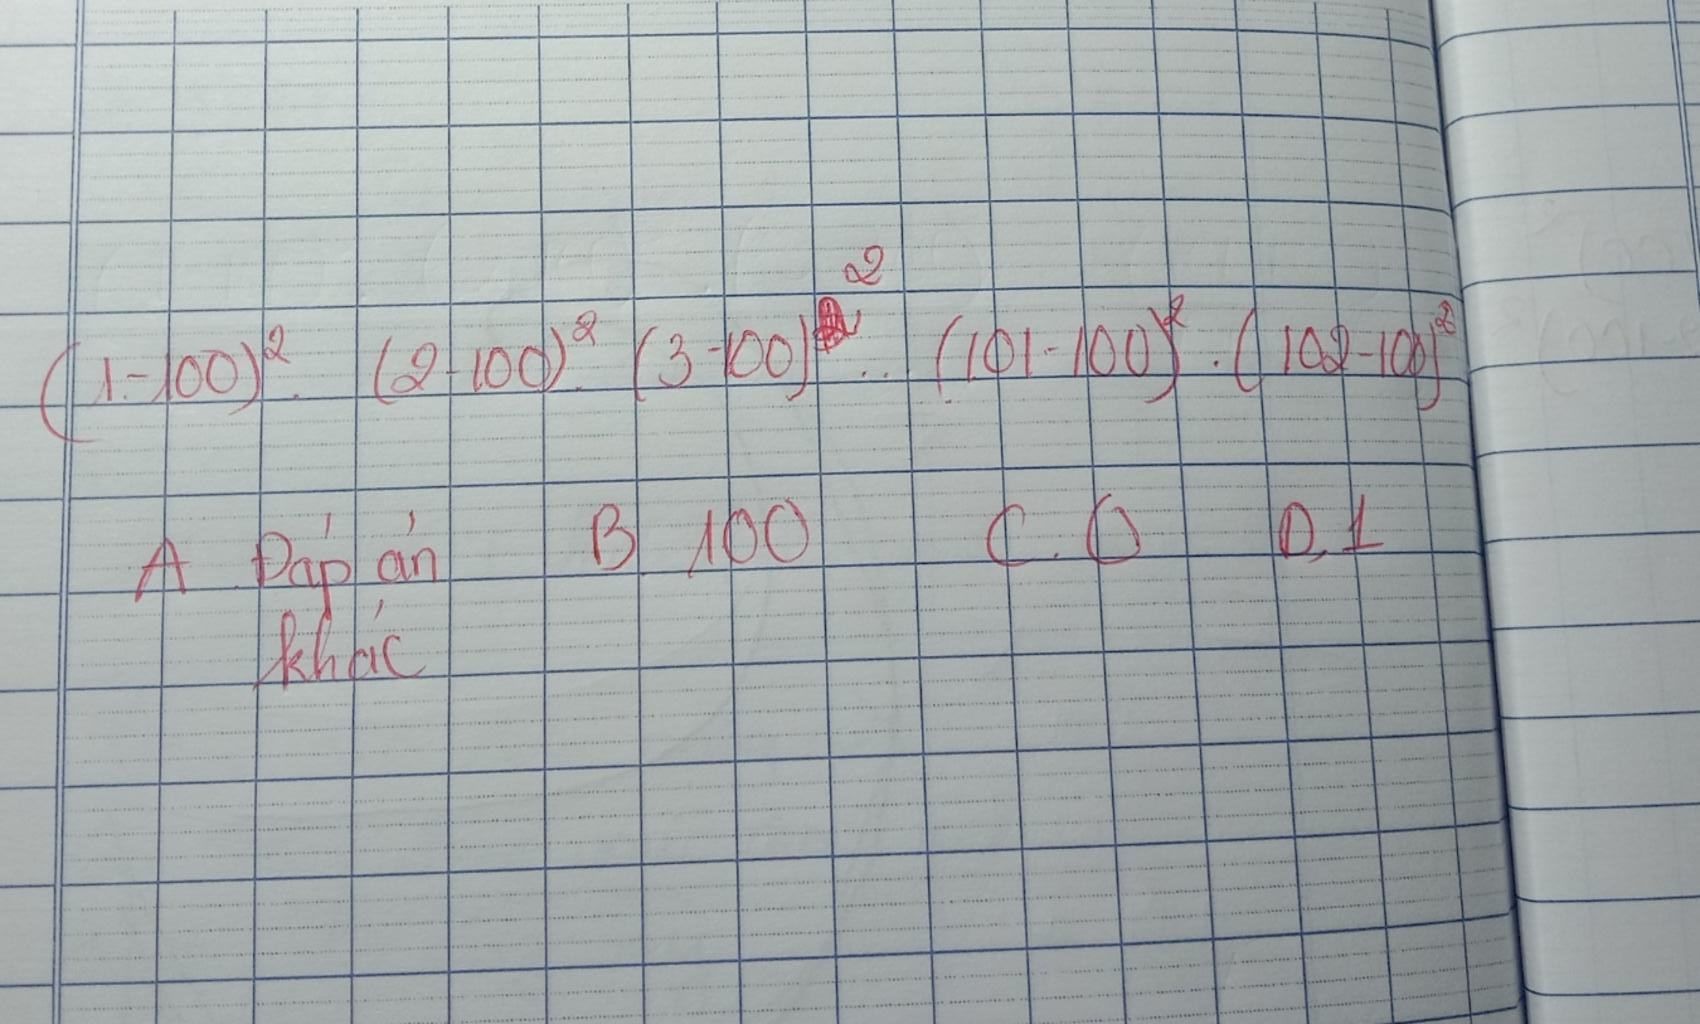 (1-100)². (2-100)². (3-100)² ... (101-100)² . (102-100)²
A Đáp án B 100 C. 0 D, 1
khác